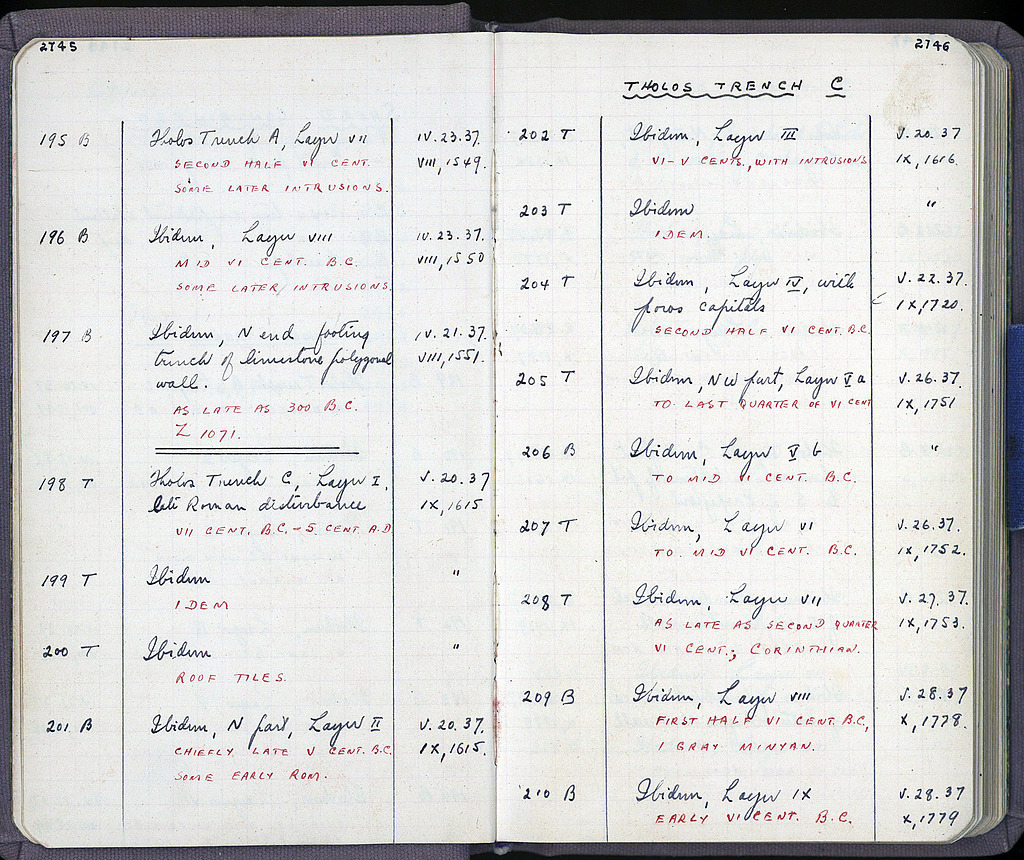 2745
195 B Tholos Trench A, Layer VII IV.23.37.
SECOND HALF VI CENT. VIII, 1549.
SOME LATER INTRUSIONS.
196 B Ibidem, Layer VIII IV.23.37.
MID VI CENT. B.C. VIII, 1550
SOME LATER INTRUSIONS.
197 B Ibidem, N end footing IV.21.37.
trench of limestone polygonal VIII, 1551.
wall.
AS LATE AS 300 B.C.
Z 1071.
198 T Tholos Trench C, Layer I, V.20.37
late Roman disturbance IX, 1615
VII CENT. B.C. - 5 CENT A.D
199 T Ibidem "
IDEM
200 T Ibidem "
ROOF TILES.
201 B Ibidem, N part, Layer II V.20.37.
CHIEFLY LATE V CENT. B.C. IX, 1615.
SOME EARLY ROM.
2746
THOLOS TRENCH C
202 T Ibidem, Layer III V.20.37
VI-V CENTS., WITH INTRUSIONS IX, 1616.
203 T Ibidem "
IDEM.
204 T Ibidem, Layer IV, with V.22.37.
poros capitals IX, 1720.
SECOND HALF VI CENT. B.C.
205 T Ibidem, NW part, Layer V a V.26.37.
TO LAST QUARTER OF VI CENT IX, 1751
206 B Ibidem, Layer V b "
TO MID VI CENT. B.C.
207 T Ibidem, Layer VI V.26.37.
TO MID VI CENT. B.C. IX, 1752.
208 T Ibidem, Layer VII V.27.37.
AS LATE AS SECOND QUARTER IX, 1753.
VI CENT.; CORINTHIAN.
209 B Ibidem, Layer VIII V.28.37
FIRST HALF VI CENT. B.C., X, 1778.
1 GRAY MINYAN.
210 B Ibidem, Layer IX V.28.37
EARLY VI CENT. B.C. X, 1779